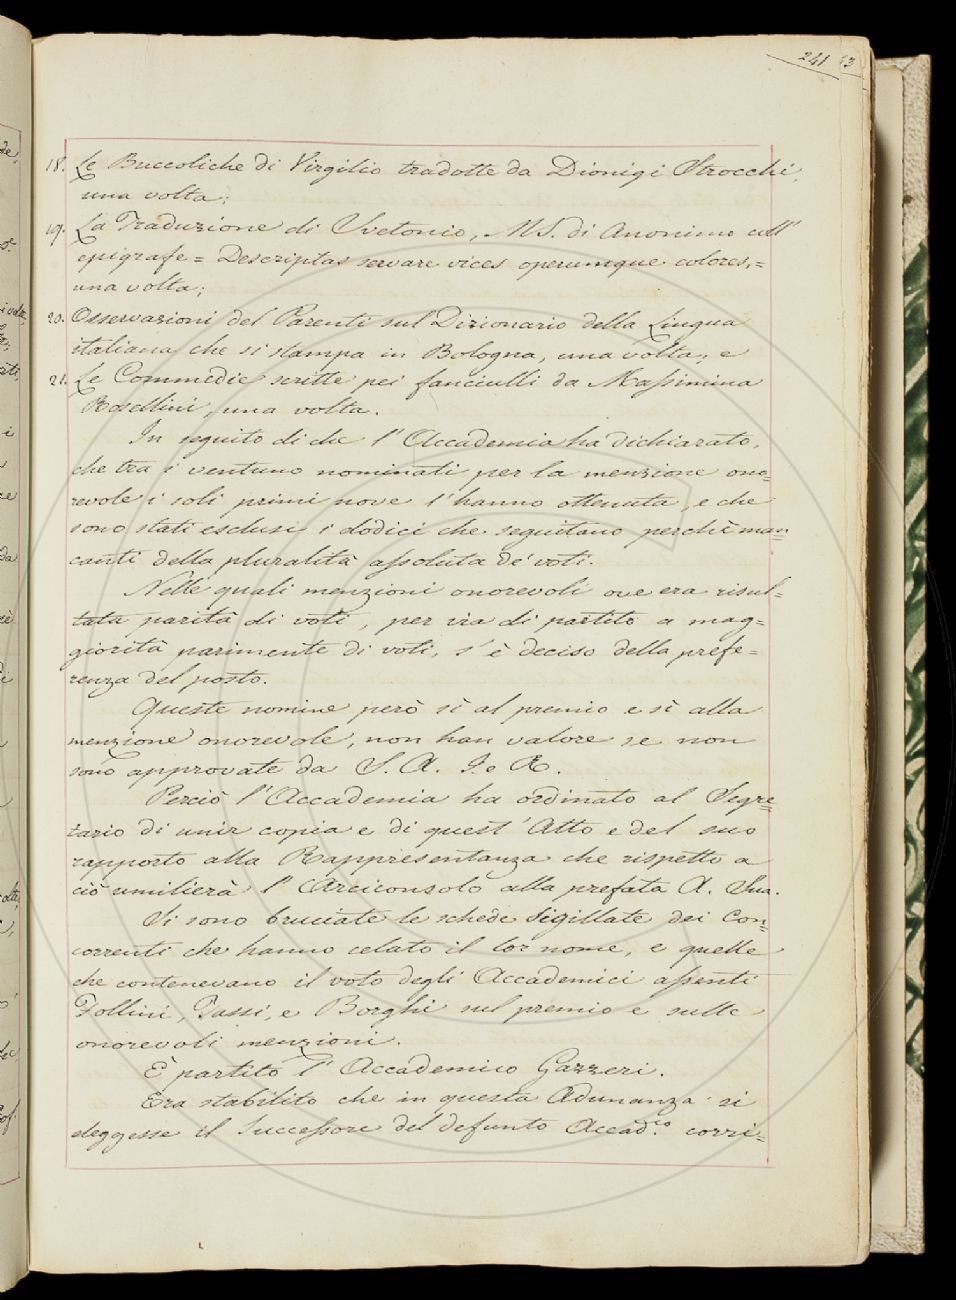 241 13
18. Le Buccoliche di Virgilio tradotte da Dionigi Strocchi,
una volta;
19. La Traduzione di Svetonio, MS. di Anonimo coll'
epigrafe = Descriptas servare vices operumque colores, =
una volta;
20. Osservazioni del Parenti sul Dizionario della Lingua
italiana che si stampa in Bologna, una volta, e
21. Le Commedie scritte pei fanciulli da Massimina
Rosellini, una volta.
In seguito di che l'Accademia ha dichiarato,
che tra i ventuno nominati per la menzione ono=
revole i soli primi nove l'hanno ottenuta, e che
sono stati esclusi i dodici che seguitano perchè man=
canti della pluralità assoluta de' voti.
Nelle quali menzioni onorevoli ove era risul=
tata parità di voti, per via di partito a mag=
giorità parimente di voti, s'è deciso della prefe=
renza del posto.
Queste nomine però sì al premio e sì alla
menzione onorevole, non han valore se non
sono approvate da S. A. I. e R.
Perciò l'Accademia ha ordinato al Segre=
tario di unir copia e di quest'Atto e del suo
rapporto alla Rappresentanza che rispetto a
ciò umilierà l'Arciconsolo alla prefata A. Sua.
Si sono bruciate le schede sigillate dei Con=
correnti che hanno celato il lor nome, e quelle
che contenevano il voto degli Accademici assenti
Follini, Tassi, e Borghi sul premio e sulle
onorevoli menzioni.
È partito l'Accademico Gazzeri.
Era stabilito che in questa Adunanza si
eleggesse il Successore del defunto Accad.co corri=